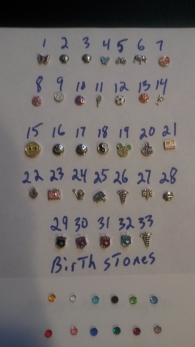 1 2 3 4 5 6 7
8 9 10 11 12 13 14
15 16 17 18 19 20 21
22 23 24 25 26 27 28
29 30 31 32 33
BirTH STones